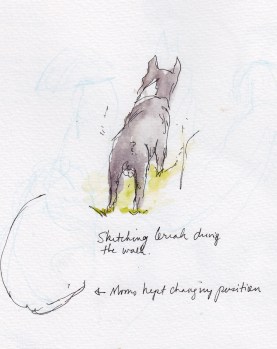 Sketching during
the walk.
← Moons kept changing position